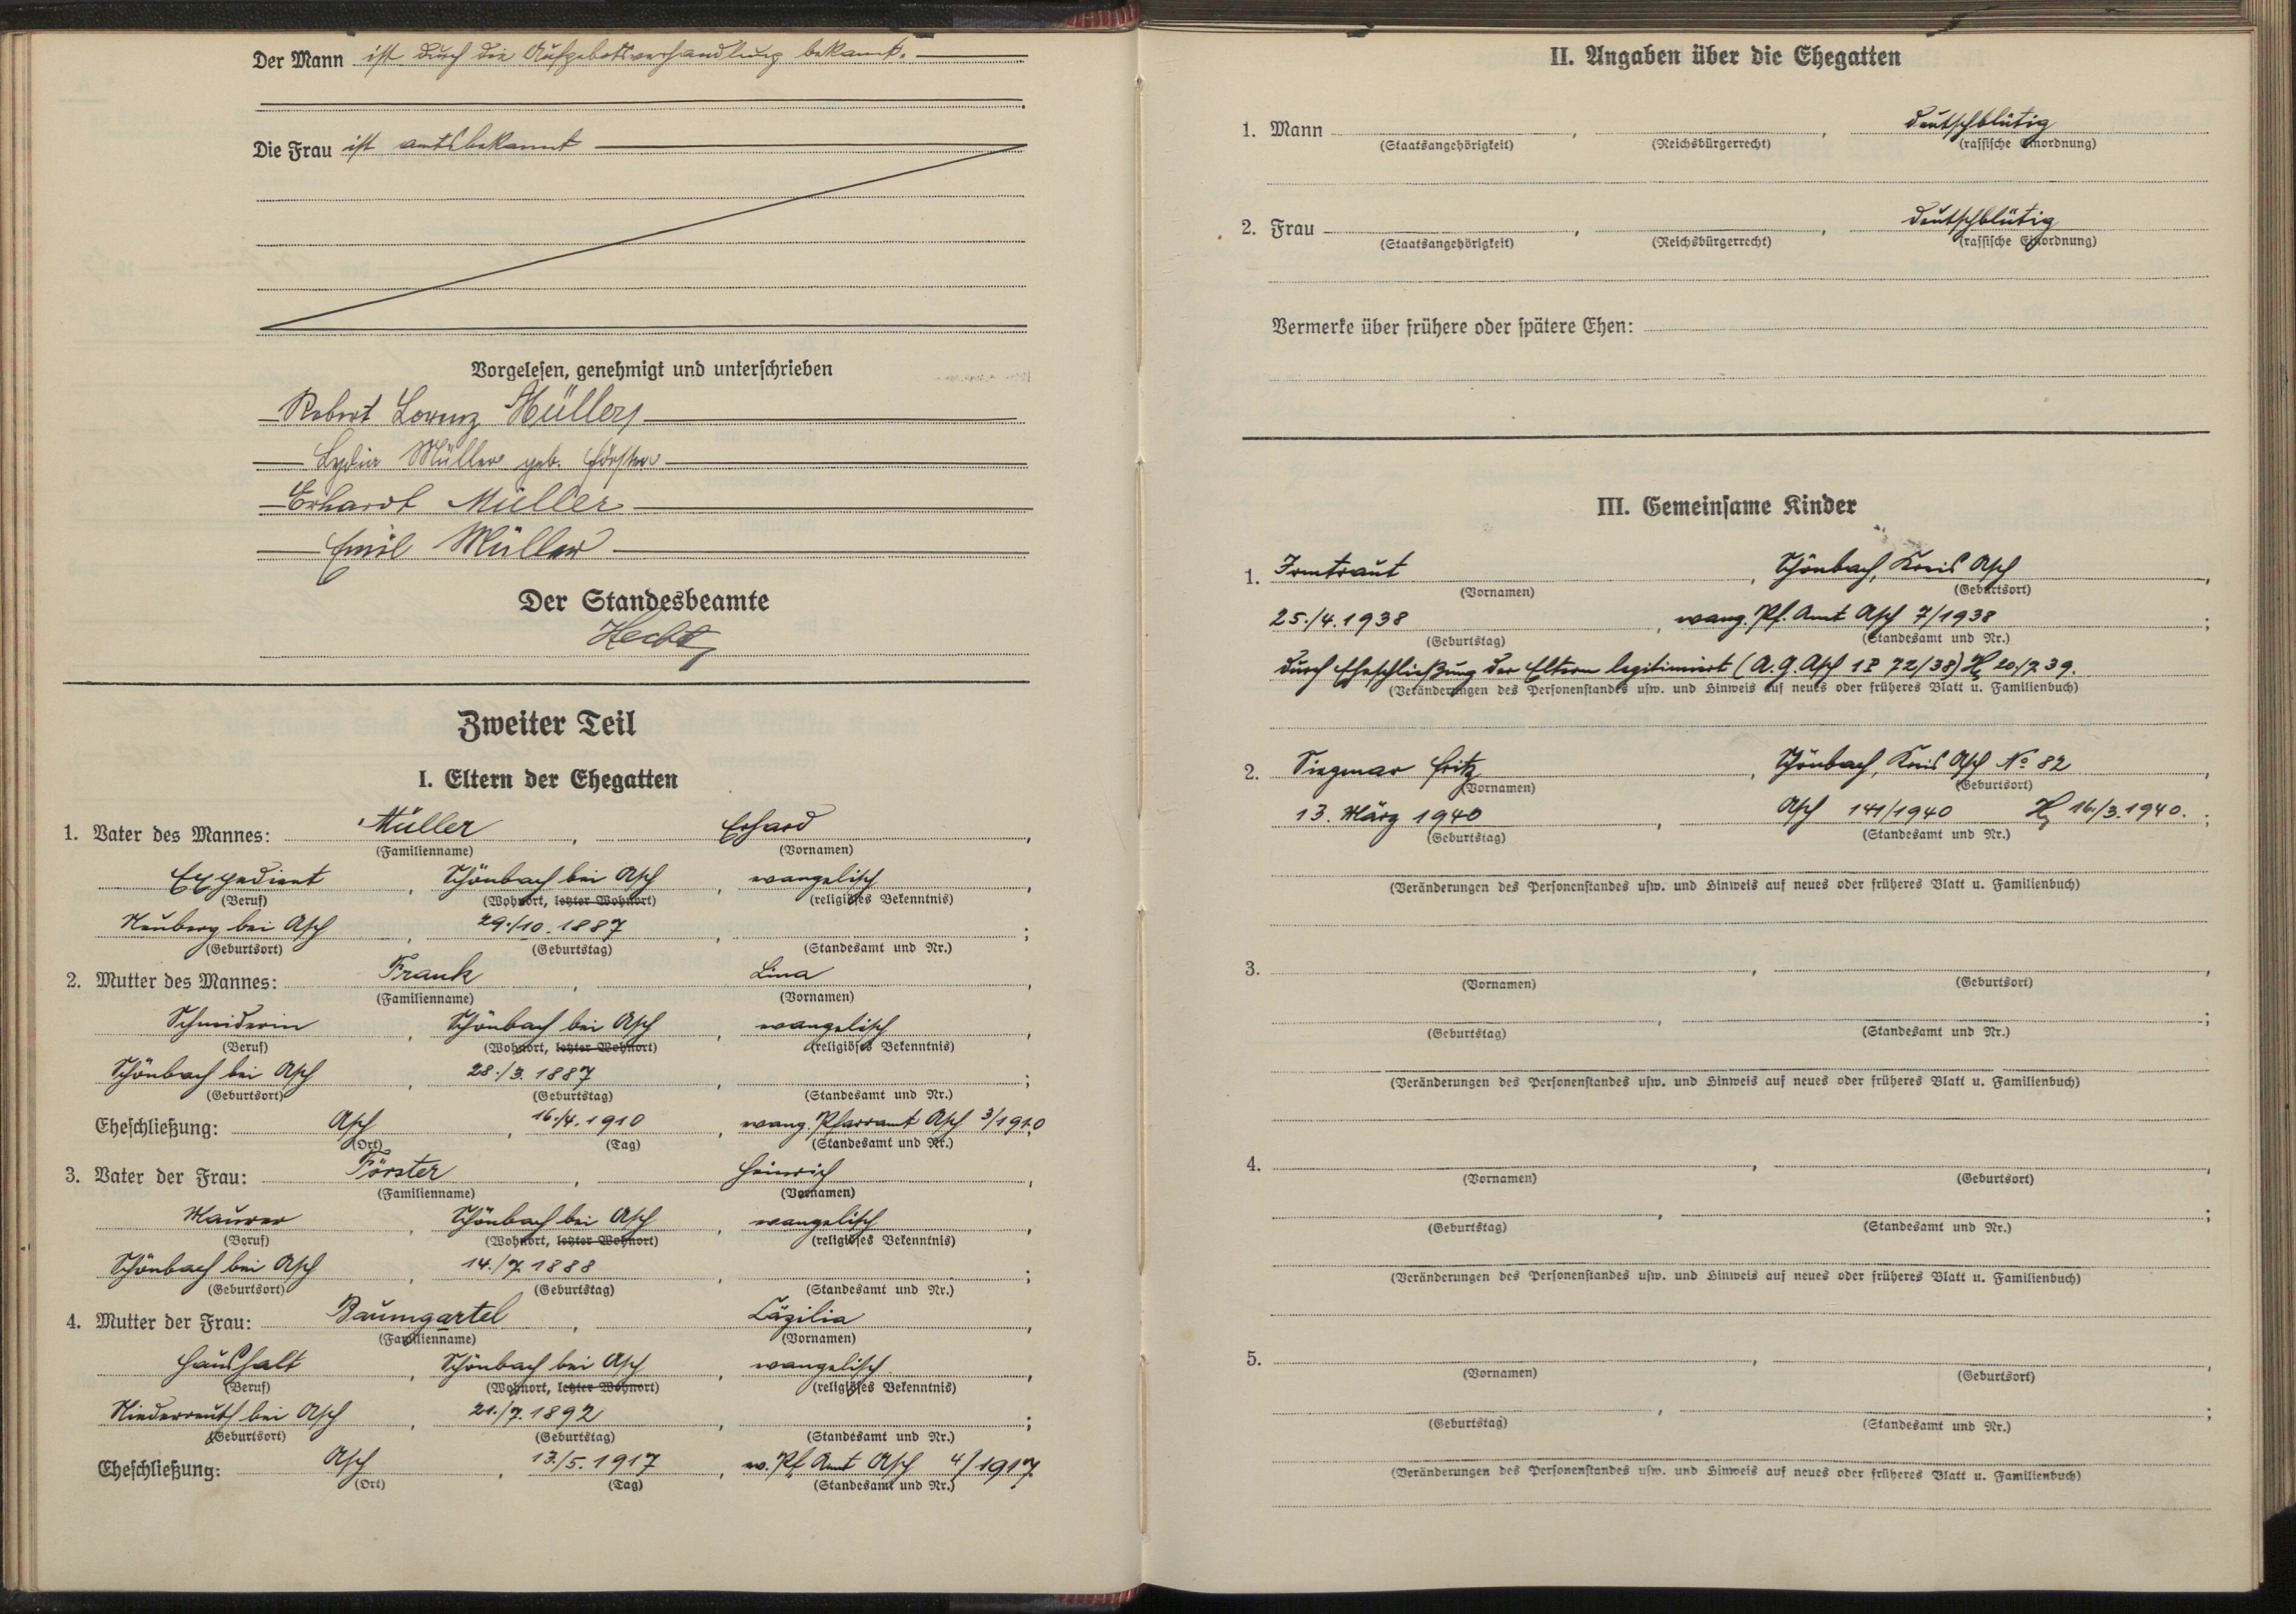 Der Mann ist durch die Aufgebotsverhandlung bekannt.
Die Frau ist amtsbekannt
Vorgelesen, genehmigt und unterschrieben
Robert Lorenz Müller
Lydia Müller geb. Förster
Erhardt Müller
Emil Müller
Der Standesbeamte
Hecht
Zweiter Teil
I. Eltern der Ehegatten
1. Vater des Mannes: Müller, Erhard,
(Familienname) (Vornamen)
Expedient, Schönbach bei Asch, evangelisch,
(Beruf) (Wohnort, letzter Wohnort) (religiöses Bekenntnis)
Neuberg bei Asch, 29./10. 1887, ;
(Geburtsort) (Geburtstag) (Standesamt und Nr.)
2. Mutter des Mannes: Frank, Lina,
(Familienname) (Vornamen)
Schneiderin, Schönbach bei Asch, evangelisch,
(Beruf) (Wohnort, letzter Wohnort) (religiöses Bekenntnis)
Schönbach bei Asch, 28./3. 1887, ;
(Geburtsort) (Geburtstag) (Standesamt und Nr.)
Eheschließung: Asch, 16./4. 1910, evang. Pfarramt Asch 3/1910
(Ort) (Tag) (Standesamt und Nr.)
3. Vater der Frau: Förster, Heinrich,
(Familienname) (Vornamen)
Maurer, Schönbach bei Asch, evangelisch,
(Beruf) (Wohnort, letzter Wohnort) (religiöses Bekenntnis)
Schönbach bei Asch, 14./7. 1888, ;
(Geburtsort) (Geburtstag) (Standesamt und Nr.)
4. Mutter der Frau: Baumgärtel, Cäzilia,
(Familienname) (Vornamen)
Haushalt, Schönbach bei Asch, evangelisch,
(Beruf) (Wohnort, letzter Wohnort) (religiöses Bekenntnis)
Niederreuth bei Asch, 21./7. 1892, ;
(Geburtsort) (Geburtstag) (Standesamt und Nr.)
Eheschließung: Asch, 13./5. 1917, ev. Pf. Amt Asch 4/1917
(Ort) (Tag) (Standesamt und Nr.)
II. Angaben über die Ehegatten
1. Mann , , deutschblütig
(Staatsangehörigkeit) (Reichsbürgerrecht) (rassische Einordnung)
2. Frau , , deutschblütig
(Staatsangehörigkeit) (Reichsbürgerrecht) (rassische Einordnung)
Vermerke über frühere oder spätere Ehen:
III. Gemeinsame Kinder
1. Irmtraut, Schönbach, Kreis Asch,
(Vornamen) (Geburtsort)
25./4. 1938, evang. Pf. Amt Asch 7/1938;
(Geburtstag) (Standesamt und Nr.)
durch Eheschließung der Eltern legitimiert (A. G. Asch 1 P 72/38) H 20./7. 39.
(Veränderungen des Personenstandes usw. und Hinweis auf neues oder früheres Blatt u. Familienbuch)
2. Siegmar Fritz, Schönbach, Kreis Asch No 82,
(Vornamen) (Geburtsort)
13. März 1940, Asch 141/1940 H 16./3. 1940. ;
(Geburtstag) (Standesamt und Nr.)
(Veränderungen des Personenstandes usw. und Hinweis auf neues oder früheres Blatt u. Familienbuch)
3. , ,
(Vornamen) (Geburtsort)
, ;
(Geburtstag) (Standesamt und Nr.)
(Veränderungen des Personenstandes usw. und Hinweis auf neues oder früheres Blatt u. Familienbuch)
4. , ,
(Vornamen) (Geburtsort)
, ;
(Geburtstag) (Standesamt und Nr.)
(Veränderungen des Personenstandes usw. und Hinweis auf neues oder früheres Blatt u. Familienbuch)
5. , ,
(Vornamen) (Geburtsort)
, ;
(Geburtstag) (Standesamt und Nr.)
(Veränderungen des Personenstandes usw. und Hinweis auf neues oder früheres Blatt u. Familienbuch)